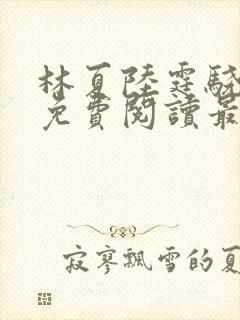 林夏陸霆驍
免費閱讀最
寂寥飄雪的夏